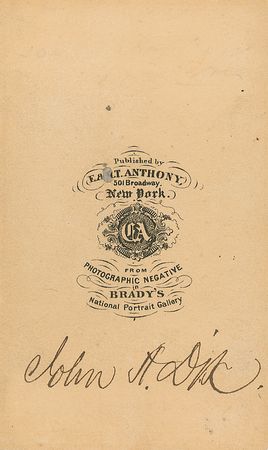 Published by
E. & H.T. ANTHONY,
501 Broadway,
New York.
EA
FROM
PHOTOGRAPHIC NEGATIVE
in
BRADY'S
National Portrait Gallery
John A. Dix.